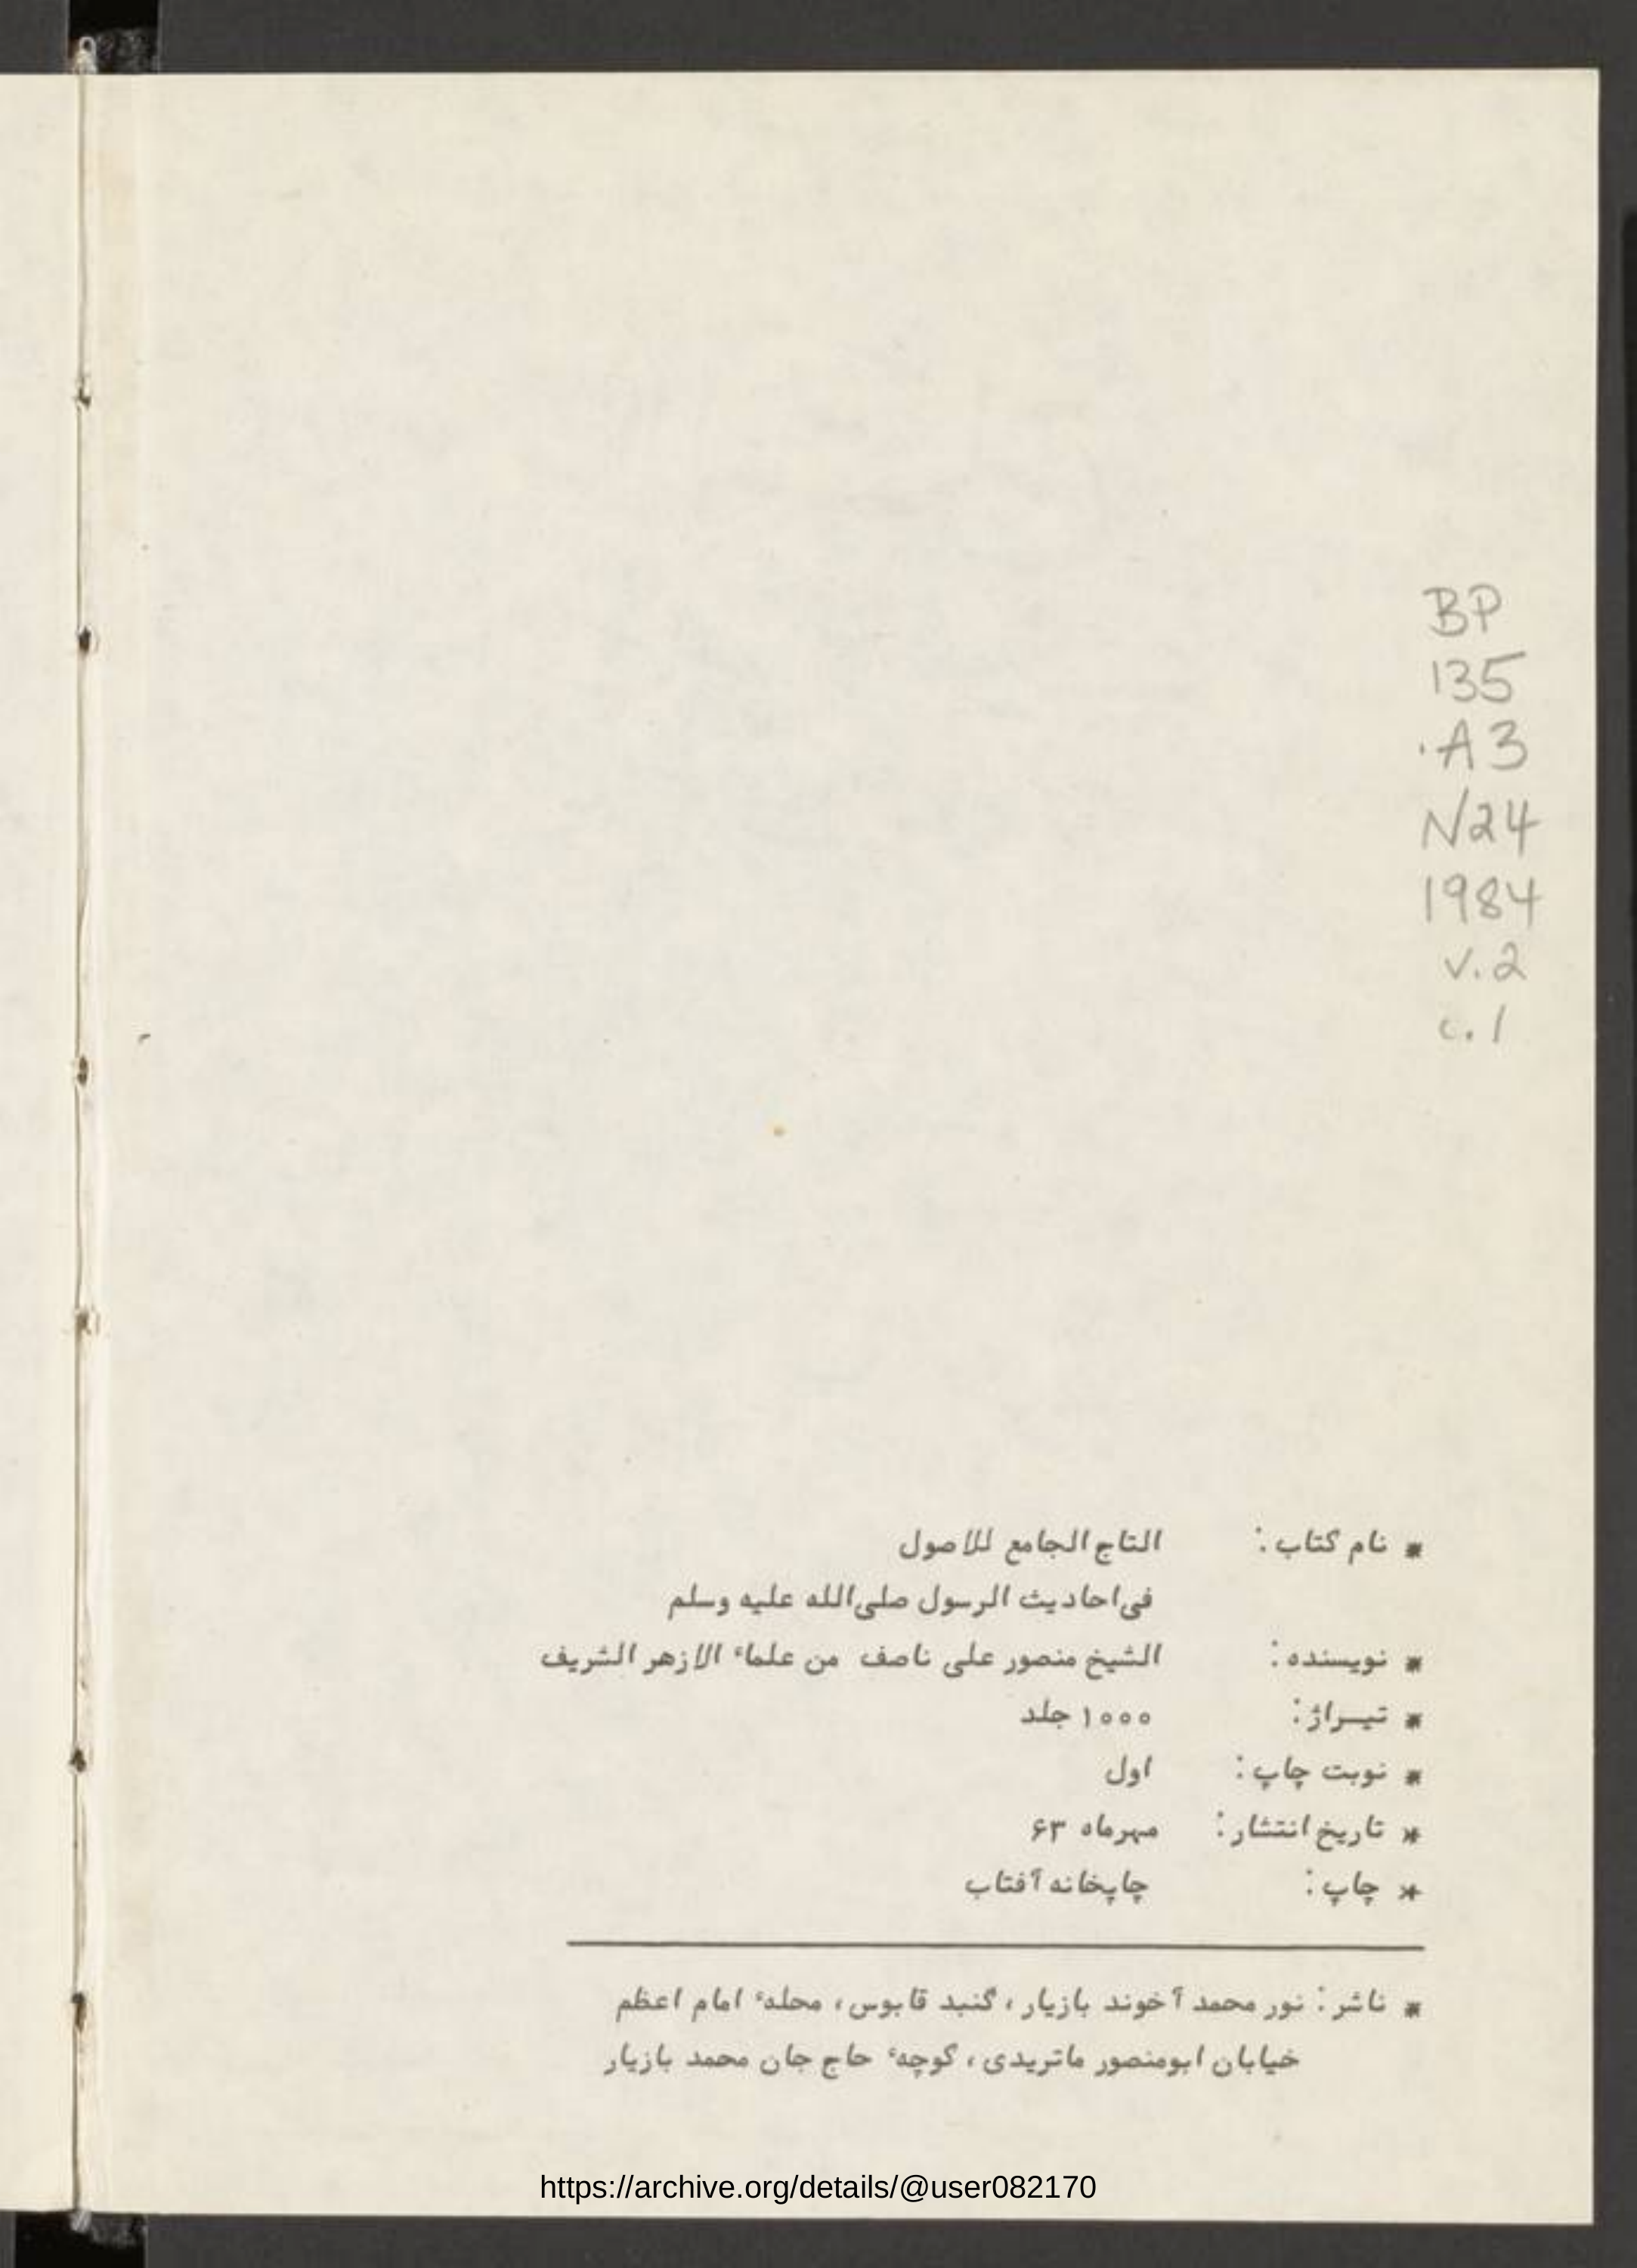 BP
135
.A3
N24
1984
v.2
c.1
* نام کتاب: التاج الجامع للاصول
فی احادیث الرسول صلی الله علیه وسلم
* نویسنده: الشیخ منصور علی ناصف من علماء الازهر الشریف
* تیـراژ: ۱۰۰۰ جلد
* نوبت چاپ: اول
* تاریخ انتشار: مهرماه ۶۳
* چاپ: چاپخانه آفتاب
* ناشر: نور محمد آخوند بازیار، گنبد قابوس، محلهء امام اعظم
خیابان ابومنصور ماتریدی، کوچهء حاج جان محمد بازیار
https://archive.org/details/@user082170